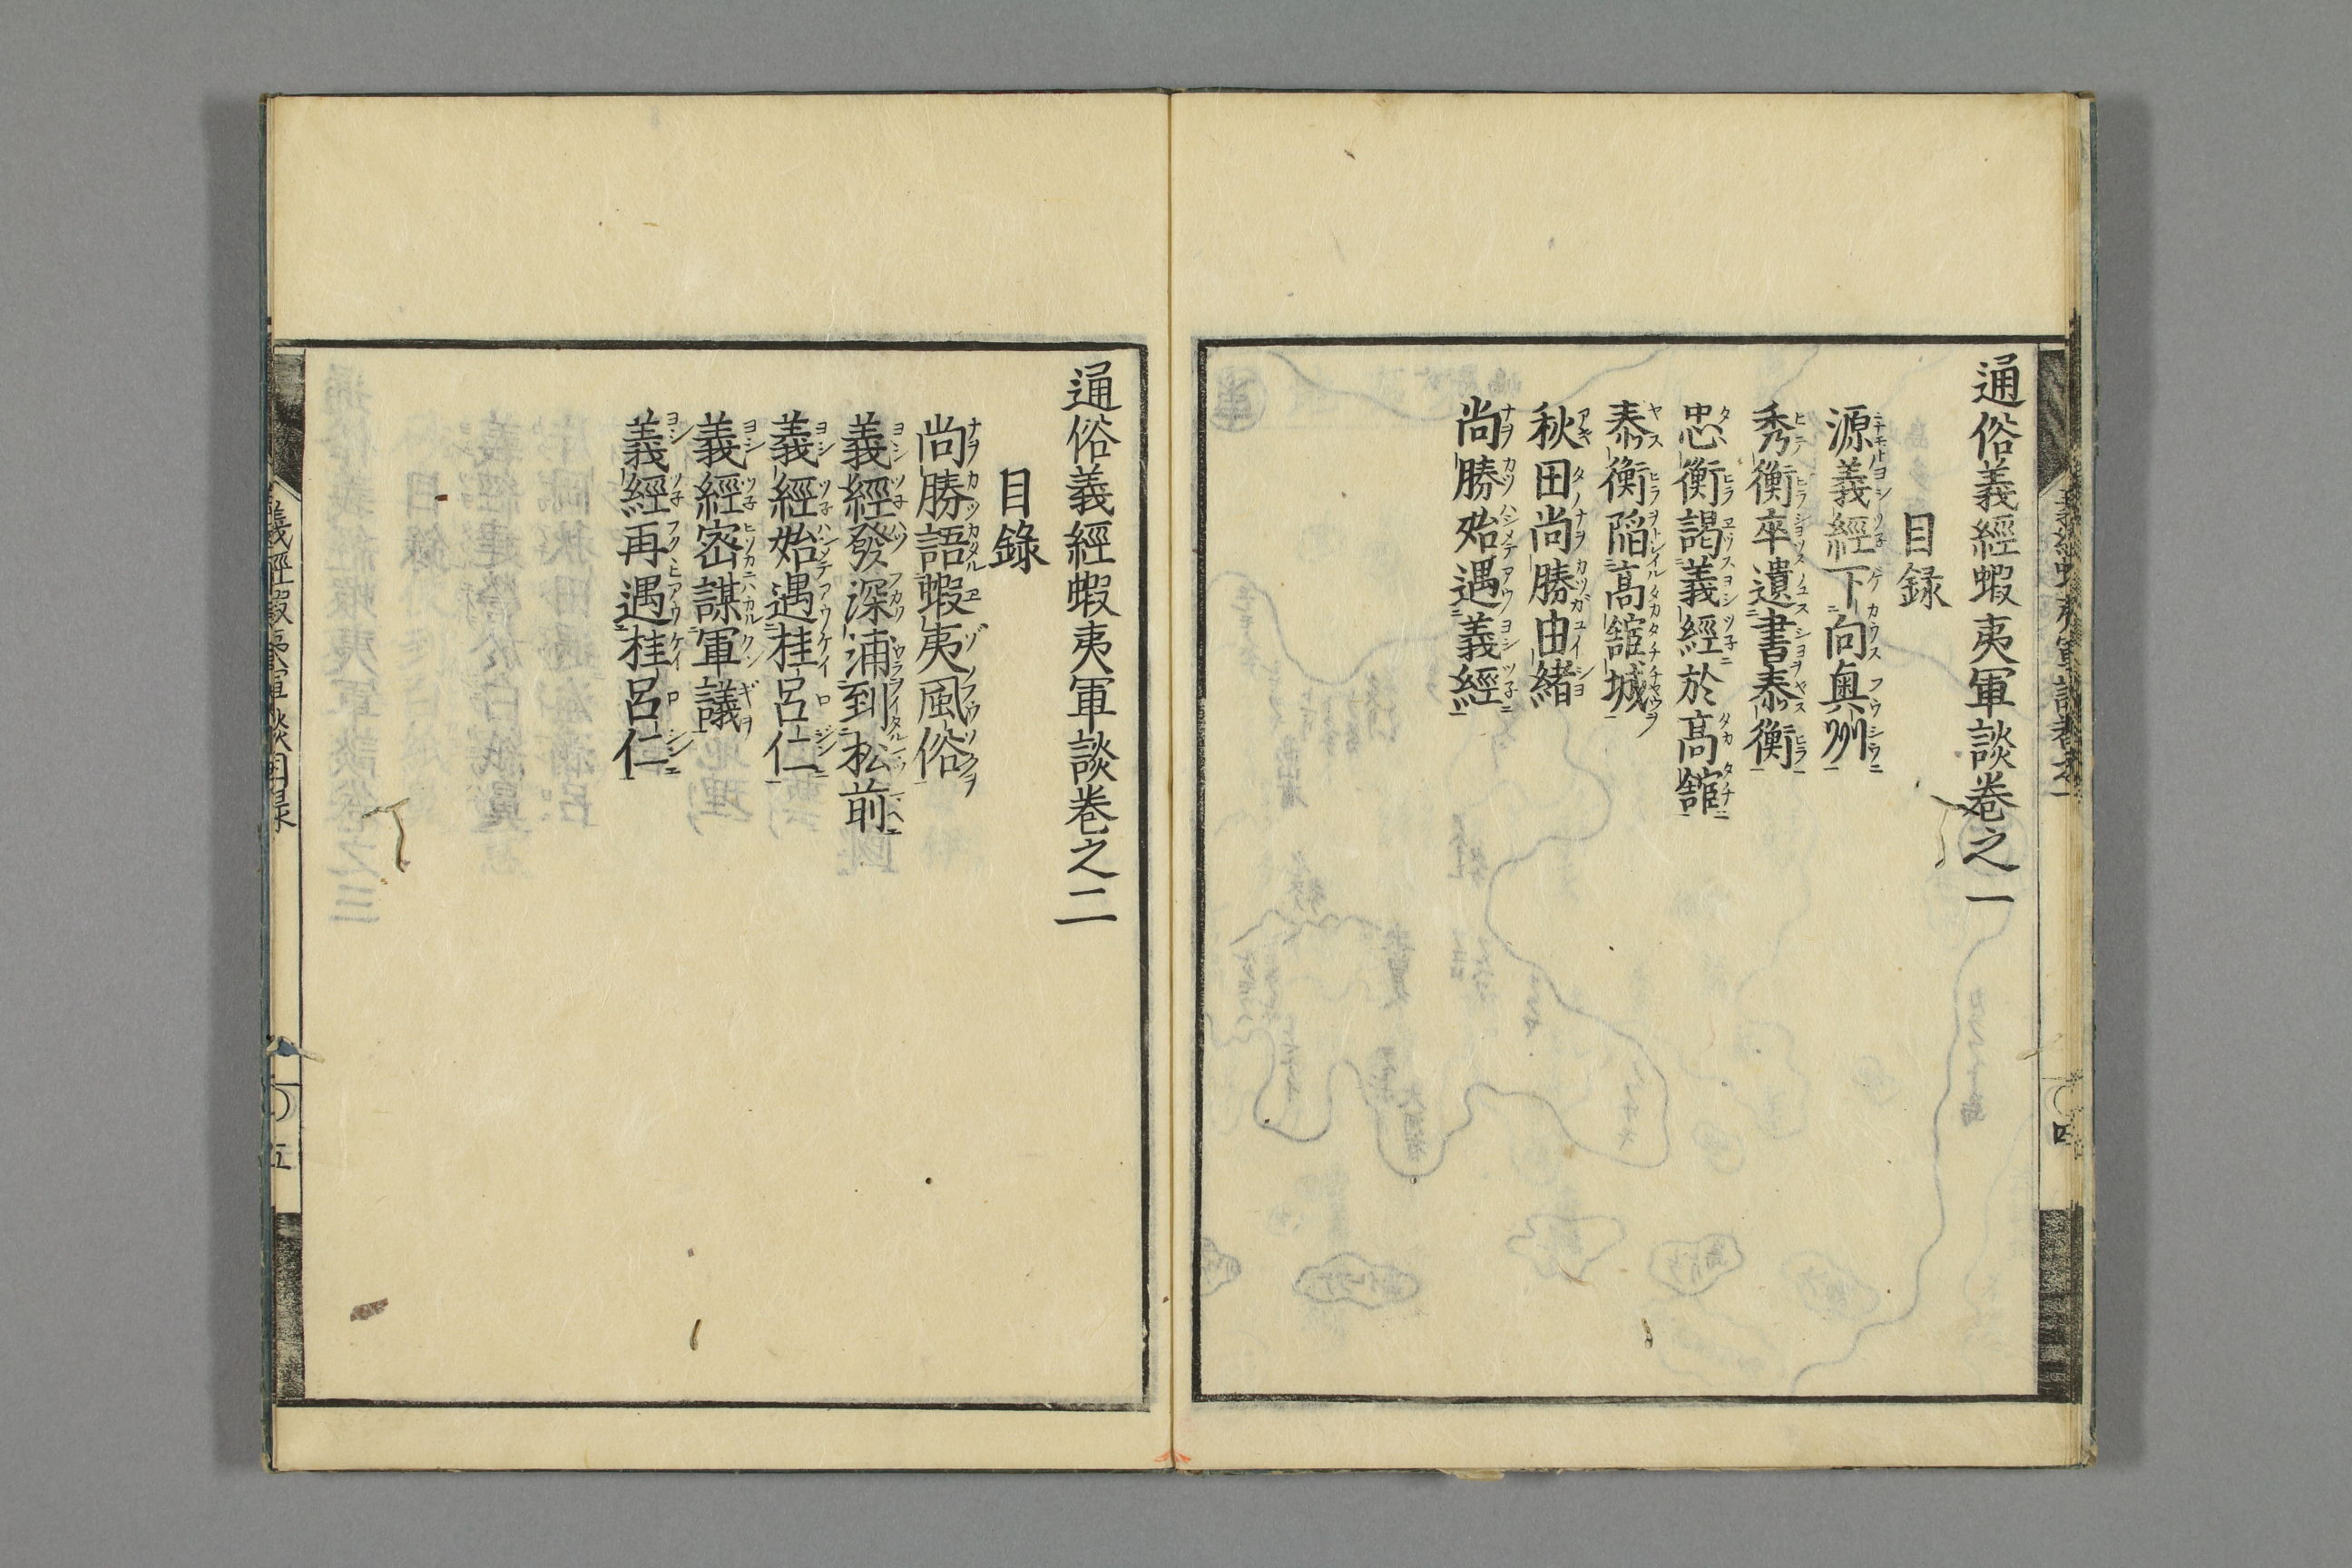 通俗義經蝦夷軍談巻之一
目録
源義經下向奥州
秀衡卒遺書泰衡
忠衡謁義經於髙舘
泰衡陷髙舘城
秋田尚勝由緒
尚勝始遇義經
通俗義經蝦夷軍談巻之二
目錄
尚勝語蝦夷風俗
義經發深浦到松前
義經始遇桂呂仁
義經密謀軍議
義經再遇桂呂仁
義經蝦夷軍談目録
五